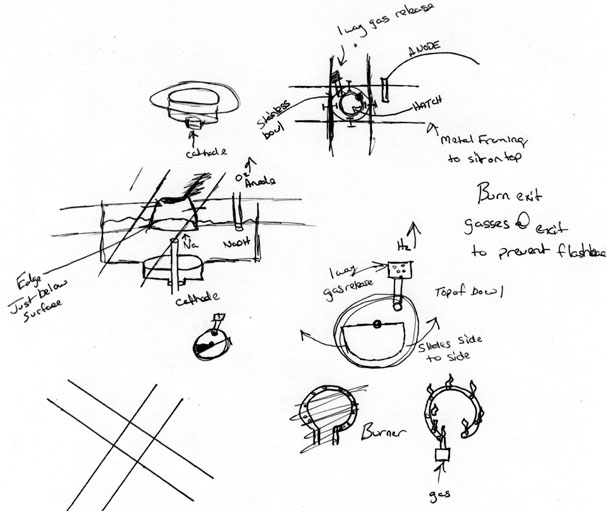 1 way gas release
ANODE
Stainless
bowl
HATCH
cathode
Metal Framing
to sit on top
O2
Anode
Burn exit
gasses @ exit
to prevent flashback
Na
NaOH
H2
1 way
gas release
Top of bowl
Edge
Just below
surface
cathode
Slides side
to side
Burner
gas